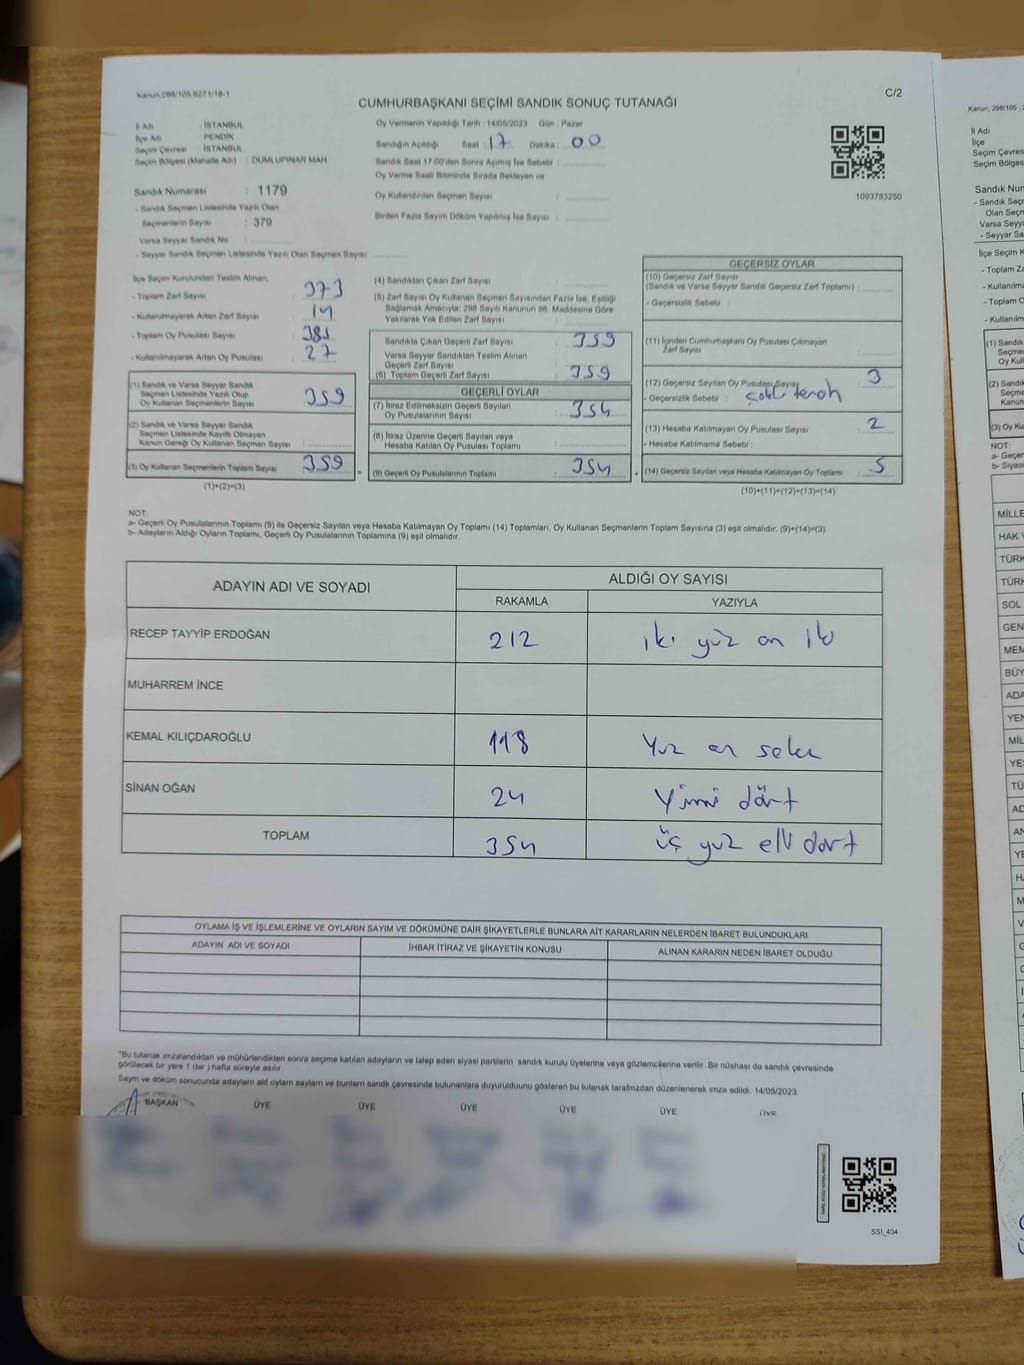 Kanun:298/105,6271/18-1
C/2
CUMHURBAŞKANI SEÇİMİ SANDIK SONUÇ TUTANAĞI
İl Adı : İSTANBUL
İlçe Adı : PENDİK
Seçim Çevresi : İSTANBUL
Seçim Bölgesi (Mahalle Adı) : DUMLUPINAR MAH.
Sandık Numarası : 1179
- Sandık Seçmen Listesinde Yazılı Olan
Seçmenlerin Sayısı : 379
Varsa Seyyar Sandık No :
- Seyyar Sandık Seçmen Listesinde Yazılı Olan Seçmen Sayısı:
Oy Vermenin Yapıldığı Tarih : 14/05/2023 Gün : Pazar
Sandığın Açıldığı Saat 17 Dakika 00
Sandık Saat 17:00'den Sonra Açılmış İse Sebebi :
Oy Verme Saati Bitiminde Sırada Bekleyen ve
Oy Kullandırılan Seçmen Sayısı :
Birden Fazla Sayım Döküm Yapılmış İse Sayısı :
1093783250
İlçe Seçim Kurulundan Teslim Alınan;
- Toplam Zarf Sayısı : 373
- Kullanılmayarak Artan Zarf Sayısı : 14
- Toplam Oy Pusulası Sayısı :
- Kullanılmayarak Artan Oy Pusulası : 27
(1) Sandık ve Varsa Seyyar Sandık
Seçmen Listesinde Yazılı Olup
Oy Kullanan Seçmenlerin Sayısı : 359
(2) Sandık ve Varsa Seyyar Sandık
Seçmen Listesinde Kayıtlı Olmayan
Kanun Gereği Oy Kullanan Seçmen Sayısı :
(3) Oy Kullanan Seçmenlerin Toplam Sayısı : 359
(1)+(2)=(3)
(4) Sandıktan Çıkan Zarf Sayısı :
(5) Zarf Sayısı Oy Kullanan Seçmen Sayısından Fazla İse, Eşitliği
Sağlamak Amacıyla; 298 Sayılı Kanunun 98. Maddesine Göre
Yakılarak Yok Edilen Zarf Sayısı :
Sandıkta Çıkan Geçerli Zarf Sayısı : 359
Varsa Seyyar Sandıktan Teslim Alınan
Geçerli Zarf Sayısı :
(6) Toplam Geçerli Zarf Sayısı : 359
GEÇERLİ OYLAR
(7) İtiraz Edilmeksizin Geçerli Sayılan
Oy Pusulalarının Sayısı : 354
(8) İtiraz Üzerine Geçerli Sayılan veya
Hesaba Katılan Oy Pusulası Toplamı :
(9) Geçerli Oy Pusulalarının Toplamı : 354
GEÇERSİZ OYLAR
(10) Geçersiz Zarf Sayısı
(Sandık ve Varsa Seyyar Sandık Geçersiz Zarf Toplamı) :
- Geçersizlik Sebebi :
(11) İçinden Cumhurbaşkanı Oy Pusulası Çıkmayan
Zarf Sayısı :
(12) Geçersiz Sayılan Oy Pusulası Sayısı : 3
- Geçersizlik Sebebi :
(13) Hesaba Katılmayan Oy Pusulası Sayısı : 2
- Hesaba Katılmama Sebebi :
(14) Geçersiz Sayılan veya Hesaba Katılmayan Oy Toplamı : 5
(10)+(11)+(12)+(13)=(14)
NOT:
a- Geçerli Oy Pusulalarının Toplamı (9) ile Geçersiz Sayılan veya Hesaba Katılmayan Oy Toplamı (14) Toplamları, Oy Kullanan Seçmenlerin Toplam Sayısına (3) eşit olmalıdır. (9)+(14)=(3)
b- Adayların Aldığı Oyların Toplamı, Geçerli Oy Pusulalarının Toplamına (9) eşit olmalıdır.
ADAYIN ADI VE SOYADI
ALDIĞI OY SAYISI
RAKAMLA YAZIYLA
RECEP TAYYİP ERDOĞAN 212 iki yüz on iki
MUHARREM İNCE
KEMAL KILIÇDAROĞLU 118 Yuz on sekiz
SİNAN OĞAN 24 Yirmi dört
TOPLAM 354 üç yüz elli dört
OYLAMA İŞ VE İŞLEMLERİNE VE OYLARIN SAYIM VE DÖKÜMÜNE DAİR ŞİKAYETLERLE BUNLARA AİT KARARLARIN NELERDEN İBARET BULUNDUKLARI
ADAYIN ADI VE SOYADI İHBAR İTİRAZ VE ŞİKAYETİN KONUSU ALINAN KARARIN NEDEN İBARET OLDUĞU
"Bu tutanak imzalandıktan ve mühürlendikten sonra seçime katılan adayların ve talep eden siyasi partilerin sandık kurulu üyelerine veya gözlemcilerine verilir. Bir nüshası da sandık çevresinde
görülecek bir yere 1 (bir ) hafta süreyle asılır.
Sayım ve döküm sonucunda adayların aldı oyların sayların ve bunların sandık çevresinde bulunanlara duyurulduunu gösteren bu tutanak tarafmzdan düzenlenerek imza edildi. 14/05/2023
BAŞKAN ÜYE ÜYE ÜYE ÜYE ÜYE ÜYE
SSI_404
Kanun; 298/105
İl Adı
İlçe
Seçim Çevres
Seçim Bölges